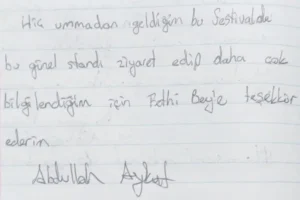 Hiç ummadan geldiğim bu Festivalde
bu güzel standı ziyaret edip daha çok
bilgilendiğim için Fethi Bey'e teşekkür
ederim
Abdullah Aykut